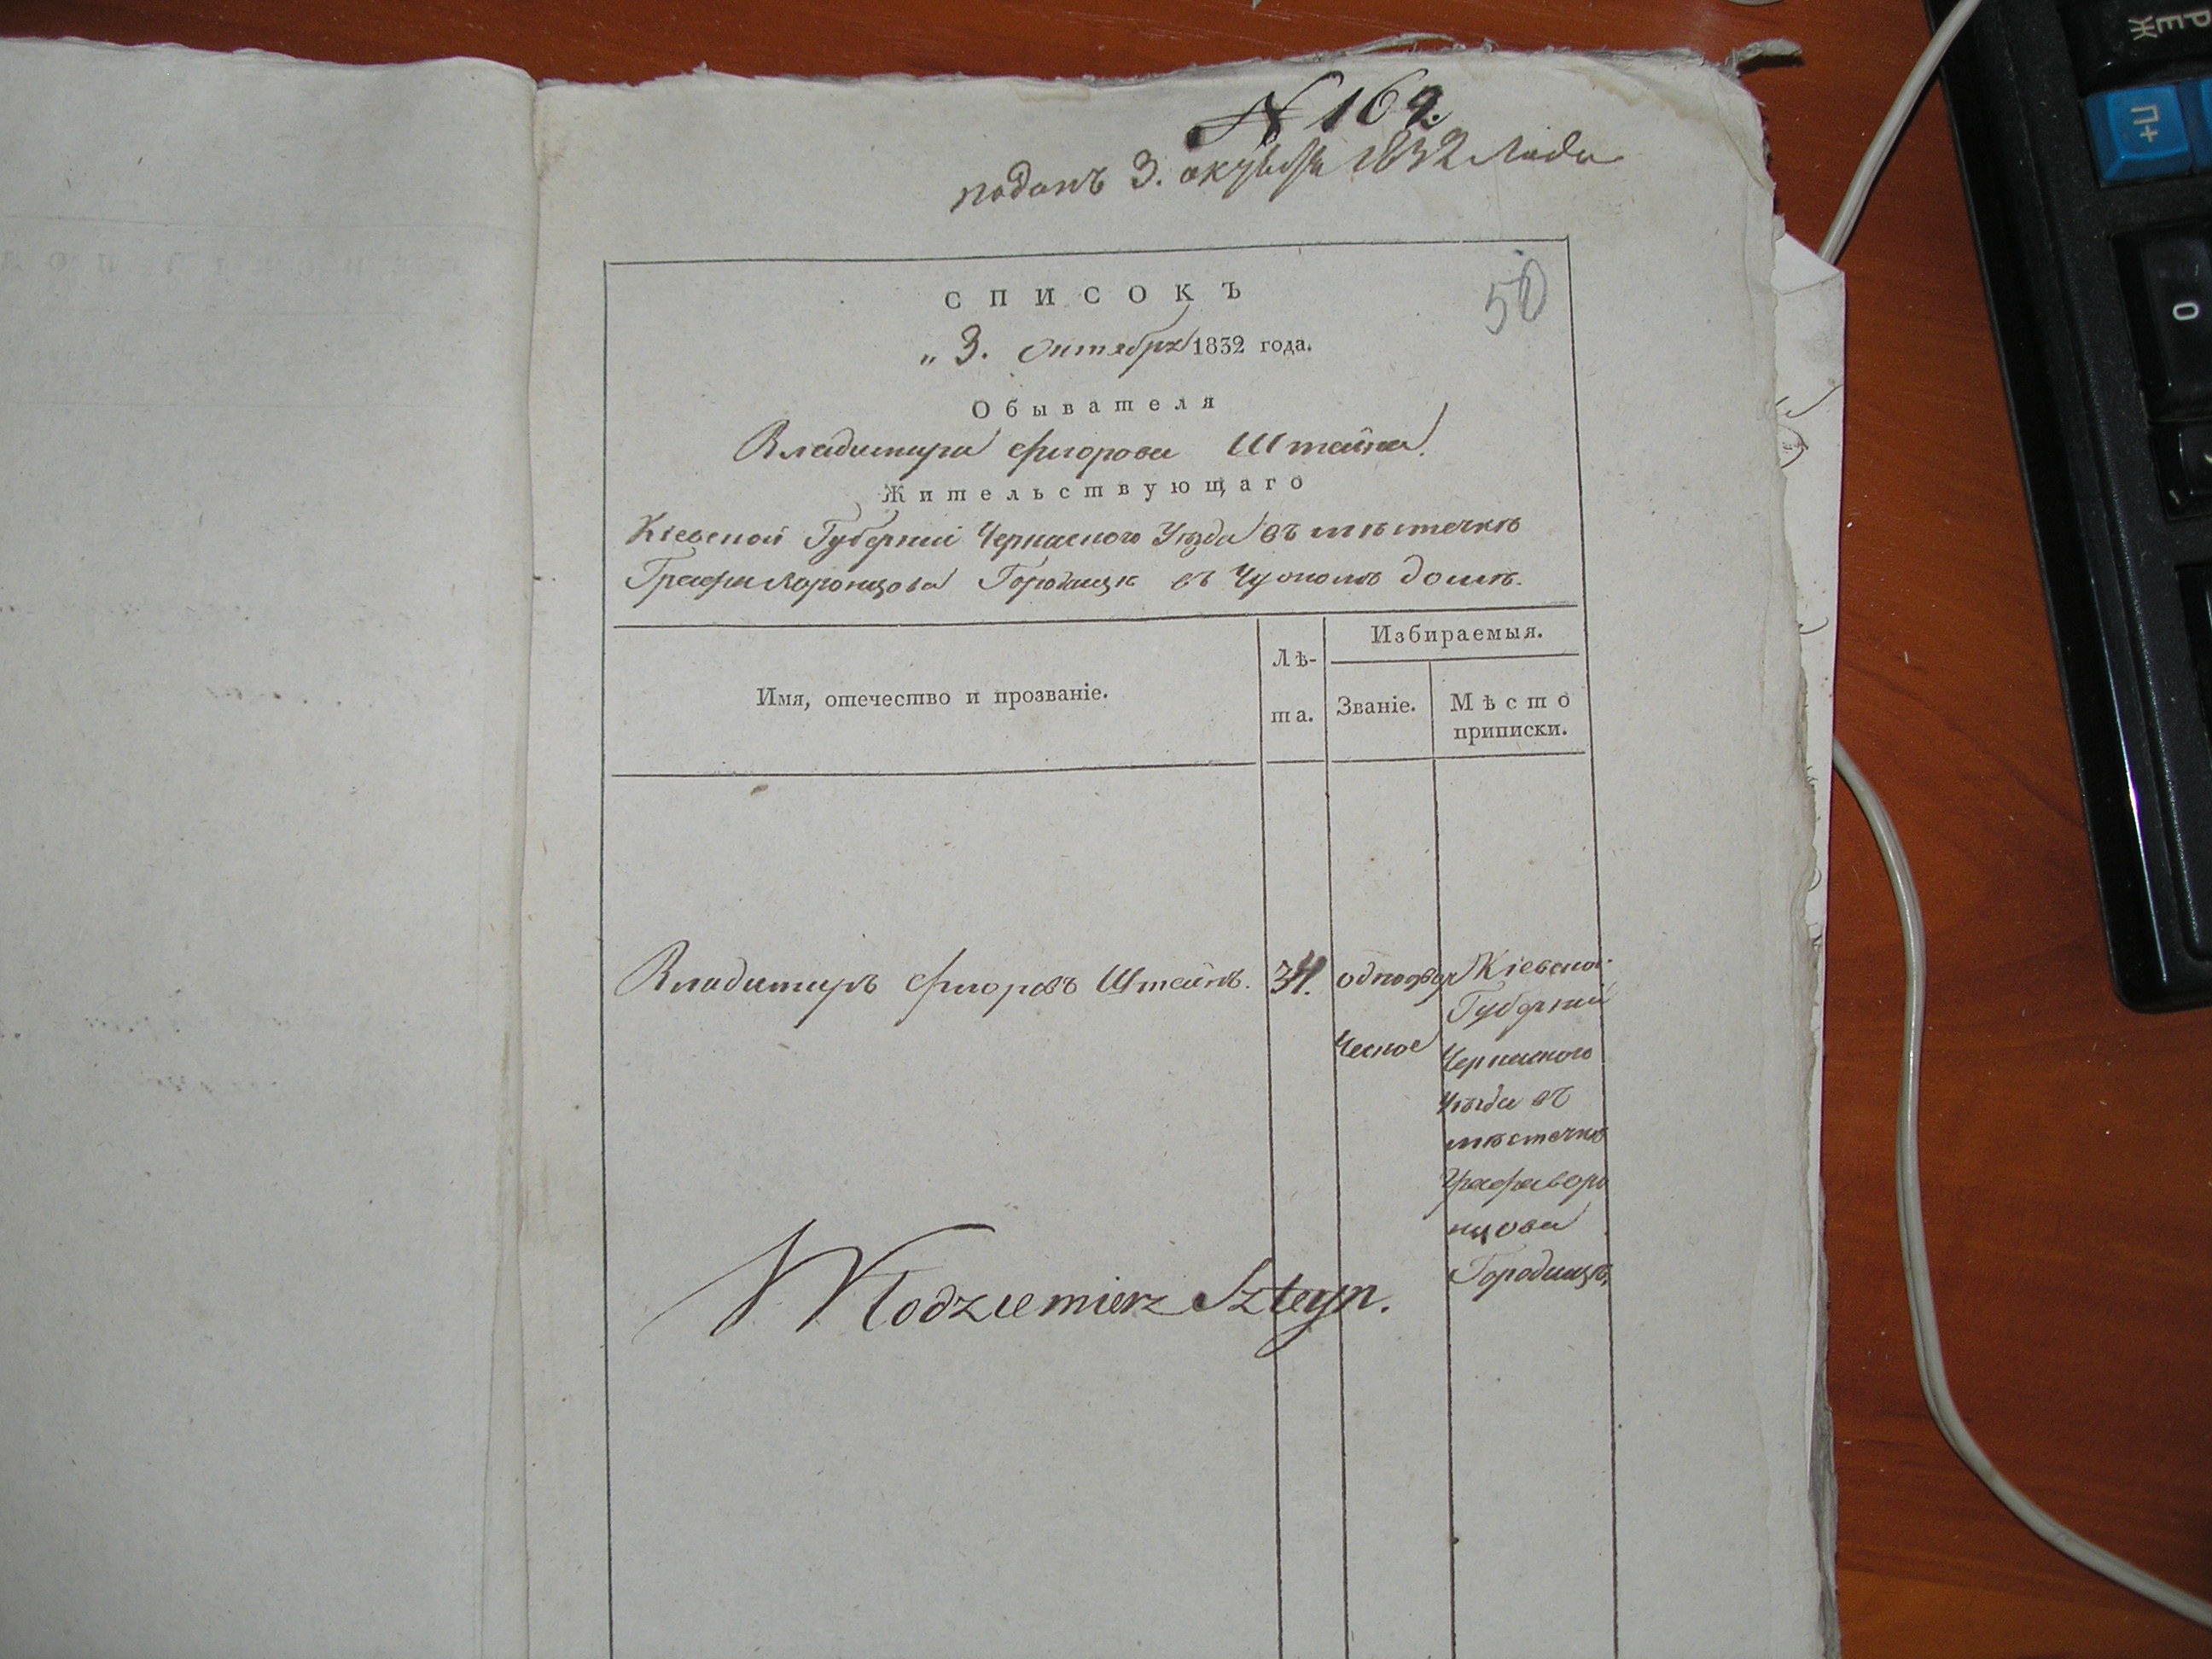 N 164.
поданъ 3. октября 1832 года
50
СПИСОКЪ
„ 3. Октября 1832 года.
Обывателя
Владимира Флорова Штейна.
Жительствующаго
Кіевской Губерніи Черкаского Уѣзда въ мѣстечкѣ
Графа Воронцова Городищѣ въ Чужомъ домѣ.
Имя, отечество и прозваніе.
Лѣ-
та.
Избираемыя.
Званіе.
Мѣсто
приписки.
Владимиръ Флоровъ Штейнъ.
34.
однодвор
ческое
Кіевской
Губерніи
Черкаского
Уѣзда въ
мѣстечкѣ
Графа Воро
нцова
Городищѣ,
Włodziemierz Szteyn.
П+
Р
Е
Ж
0